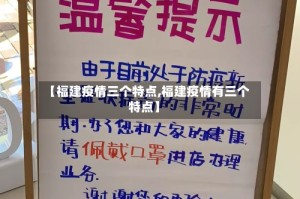 温馨提示
由于目前处于防疫新
【福建疫情三个特点,福建疫情有三个
特点】
的非常时
期.为了您和大家的健康
请佩戴口罩进店办理
业务.
谢谢您的